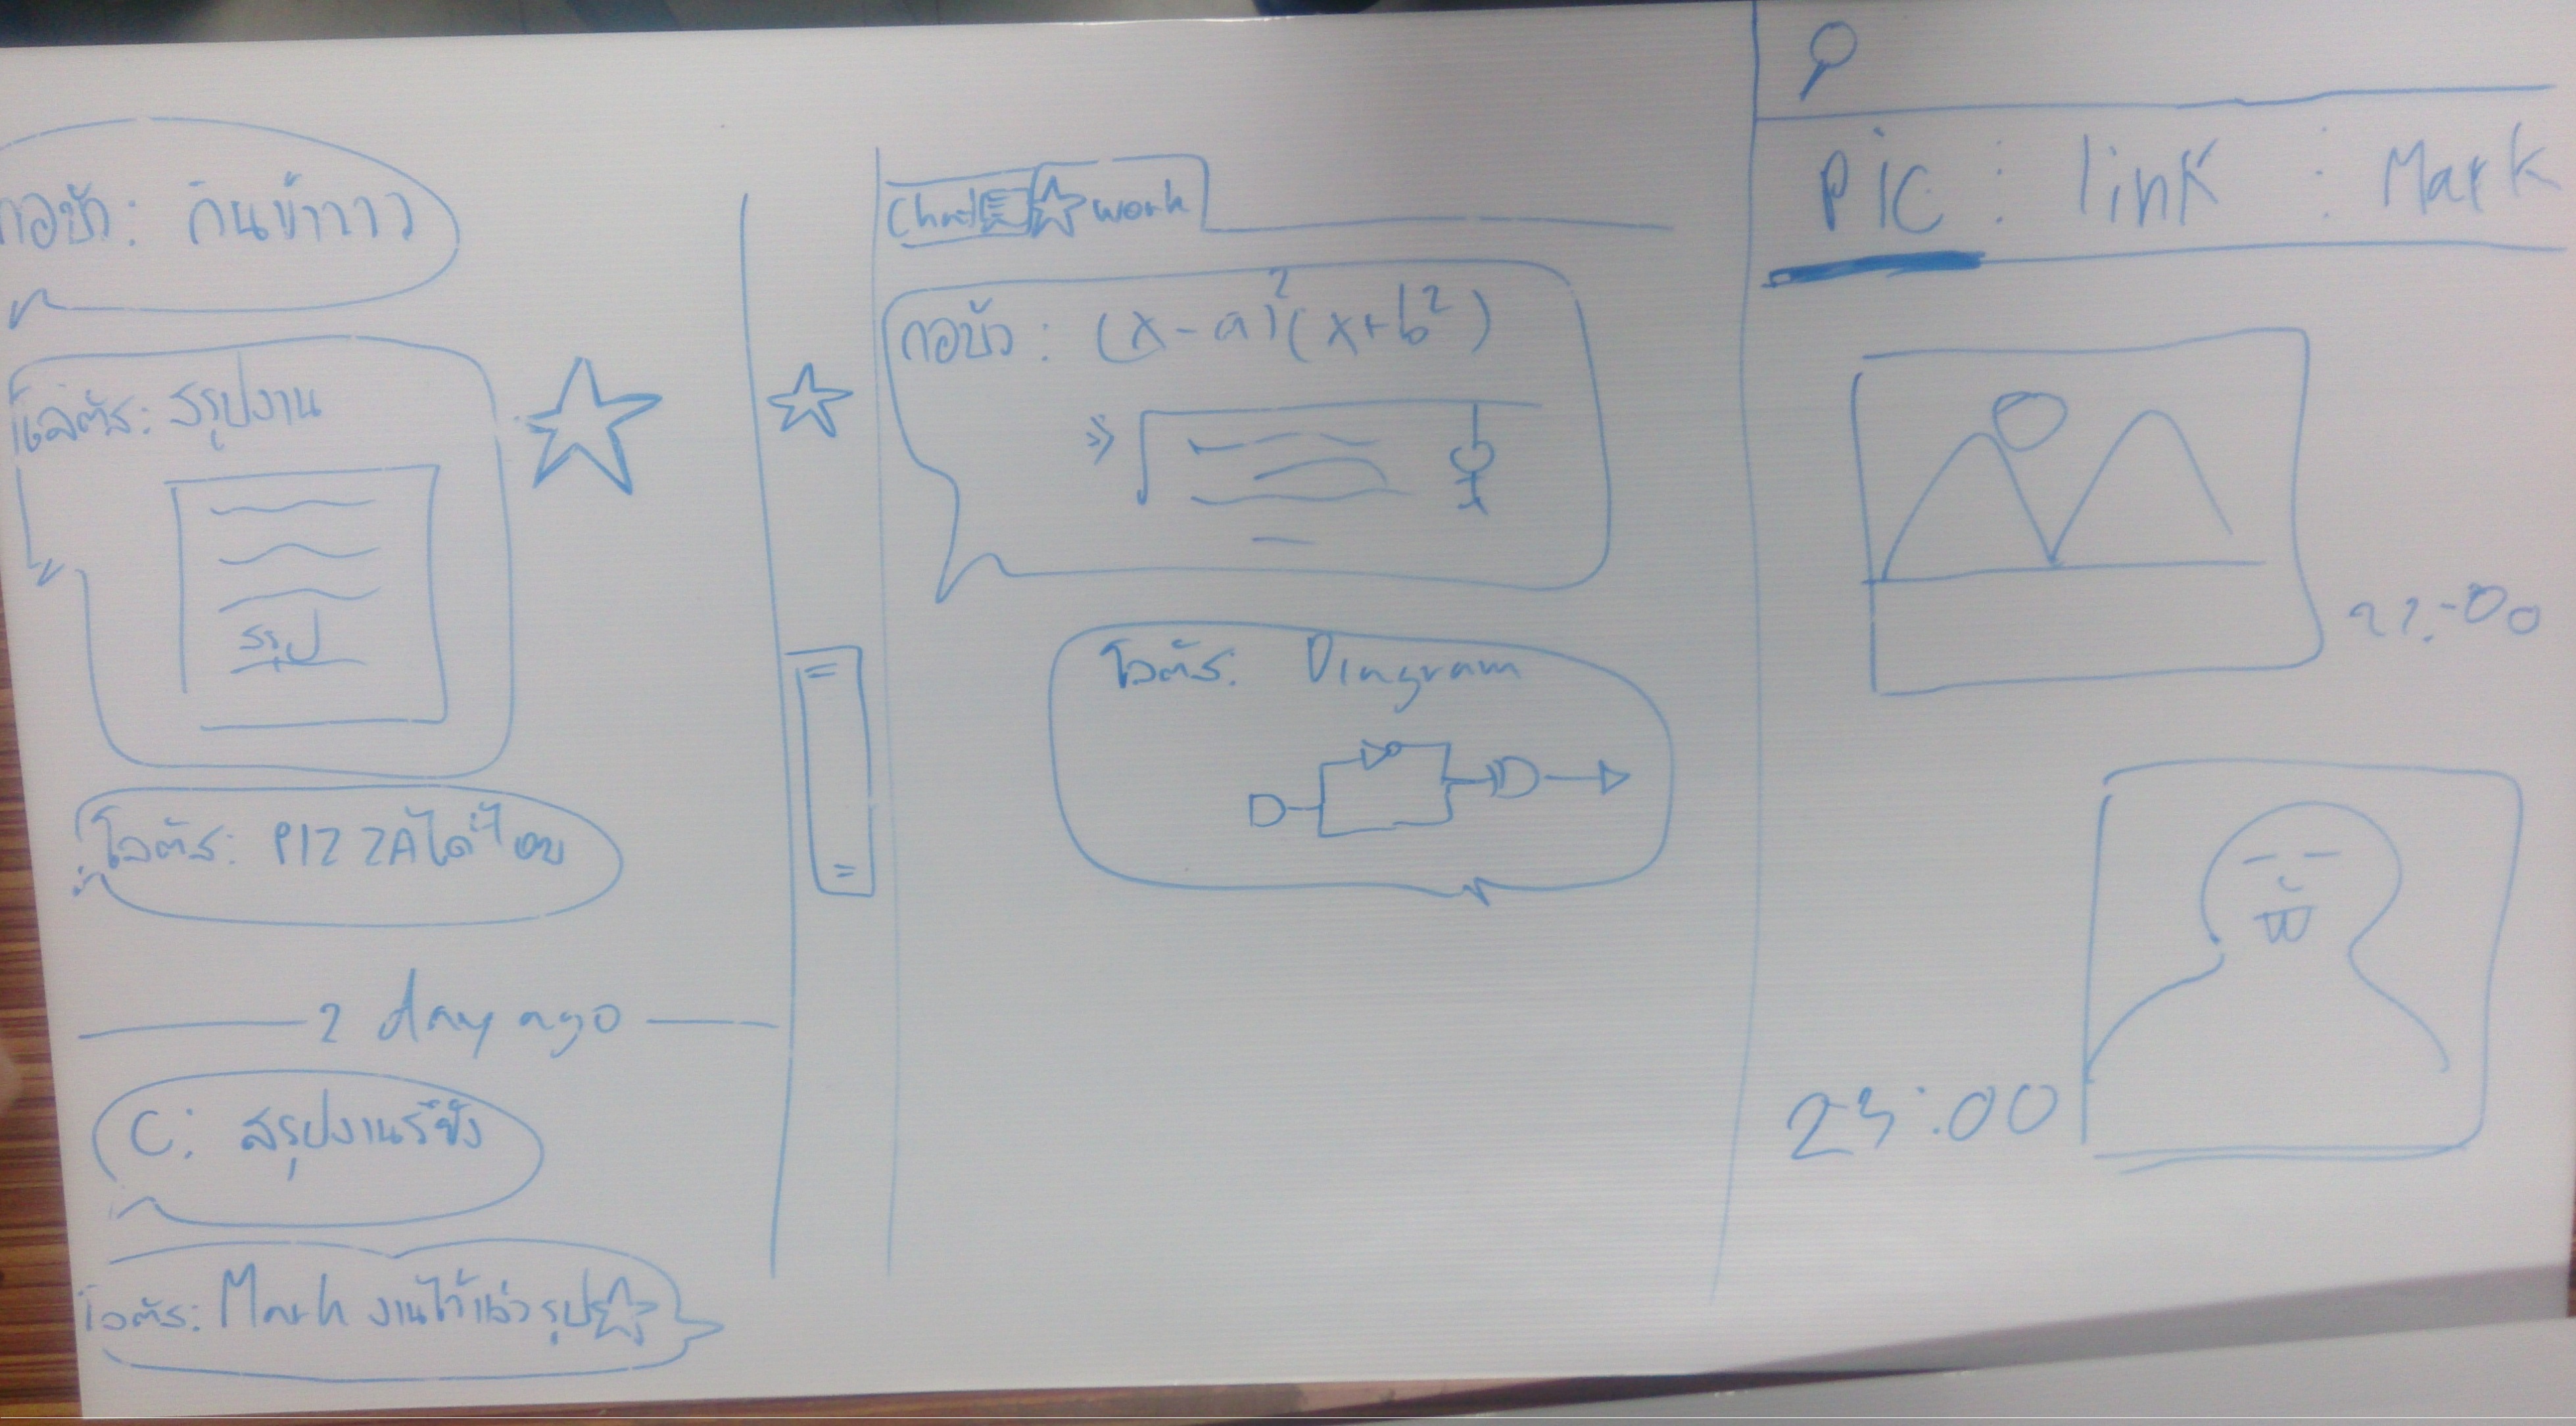 กอบัว: กินข้าาาว
โลตัส: สรุปงาน
สรุป
โลตัส: PIZZA
2 day ago
C: สรุปงานรึยัง
โลตัส: Mark งานไว้แล้ว รูป
Chat work
กอบัว: (x-a)²(x+b²)
โลตัส: Diagram
Pic : link : Mark
23:00